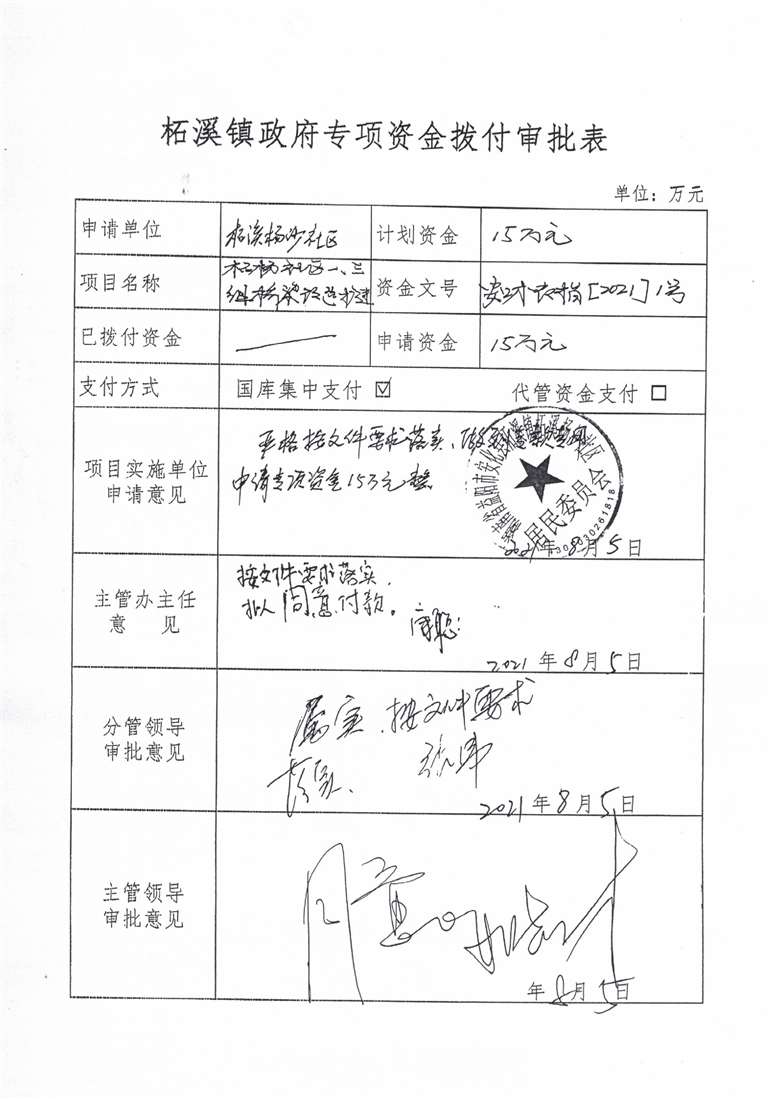 柘溪镇政府专项资金拨付审批表
单位：万元
申请单位 柘溪杨沙社区 计划资金 15万元
项目名称 社区一、三
资金文号 [2021]1号
已拨付资金 申请资金 15万元
支付方式 国库集中支付 ☑ 代管资金支付 □
项目实施单位
申请意见
严格按文件要求落实、
申请专项资金15万元整
居民委员会
2021年8月5日
主管办主任
意 见
按文件要求落实，
拟 同意付款。
2021年8月5日
分管领导
审批意见
属实，按文件要求
落实、
2021年8月5日
主管领导
审批意见
同意
年8月5日